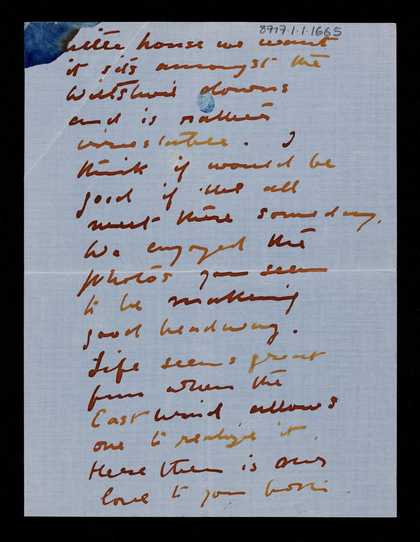 8717.1.1.1665
little house we want
it sits amongst the
Wiltshire downs
and is rather
irresistible. I
think it would be
good if we all
meet there someday.
We enjoyed the
photos you seem
to be making
good headway.
Life seems great
fun when the
East wind allows
one to realize it.
Here then is our
love to you both